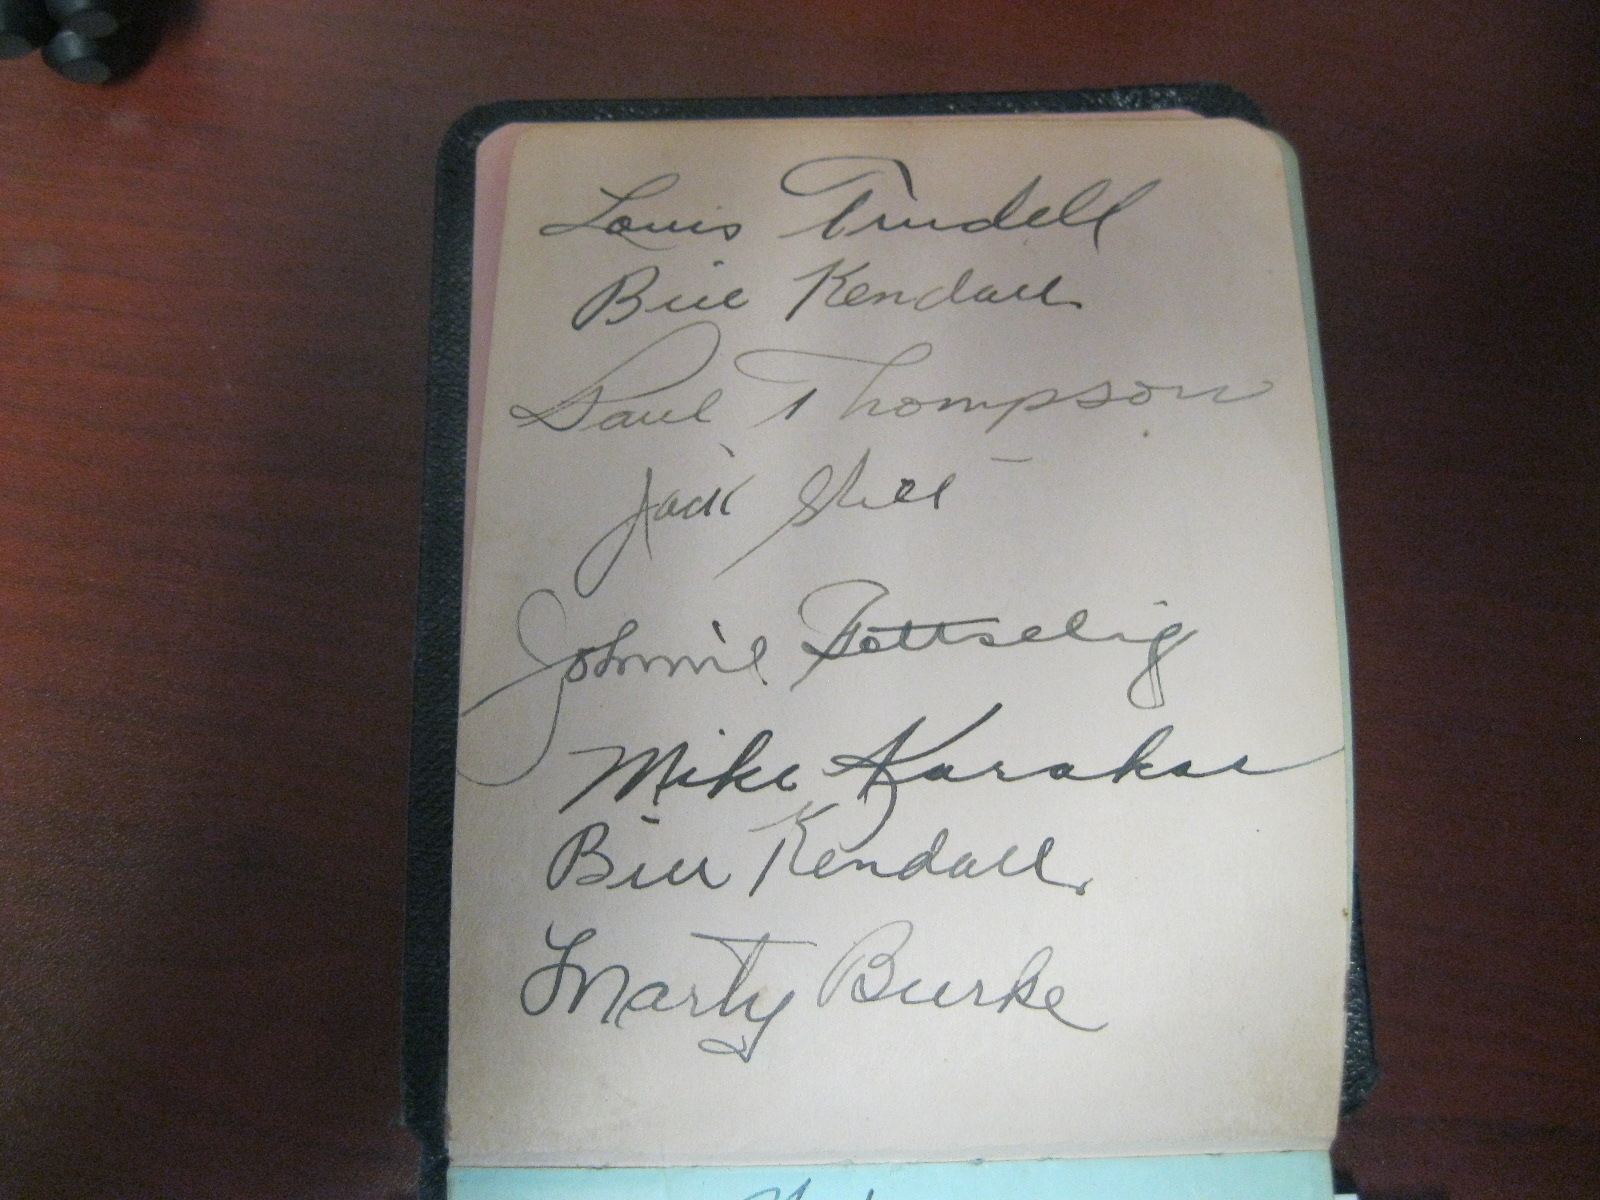 Louis Trudell
Bill Kendall
Paul Thompson
Jack Shill
Johnnie Gottselig
Mike Karakas
Bill Kendall
Marty Burke